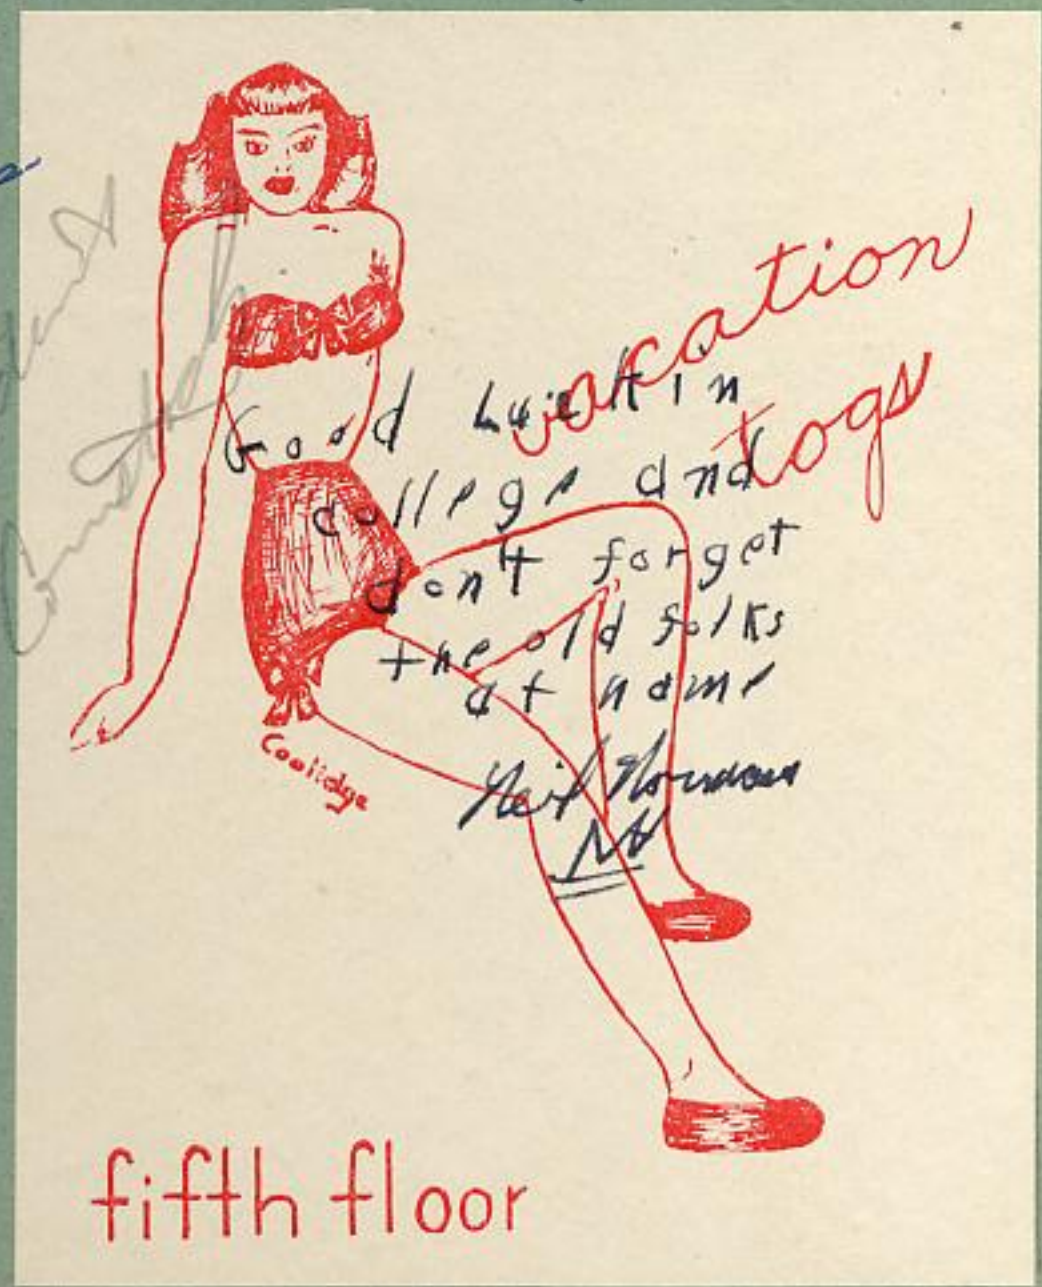 vacation
togs
Good Luck in
college and
don't forget
the old folks
at home
Neil
Coolidge
fifth floor